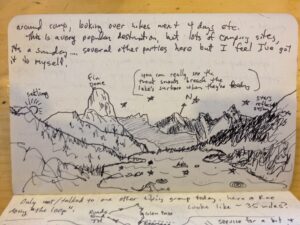 around camp, looking over hikes next 4 days etc.
This is a very popular destination, but lots of camping sites,
it's a sunday... several other parties here but I feel I've got
it to myself.
fin
dome
(you can really see the
trout snouts breach the
lake's surface when they're feeding)
N
stars
Only met/talked to one other hiking group today, have a
along "the loop".
like ~ 35 miles?
Roads
Glen Pass
TH
service for a bit